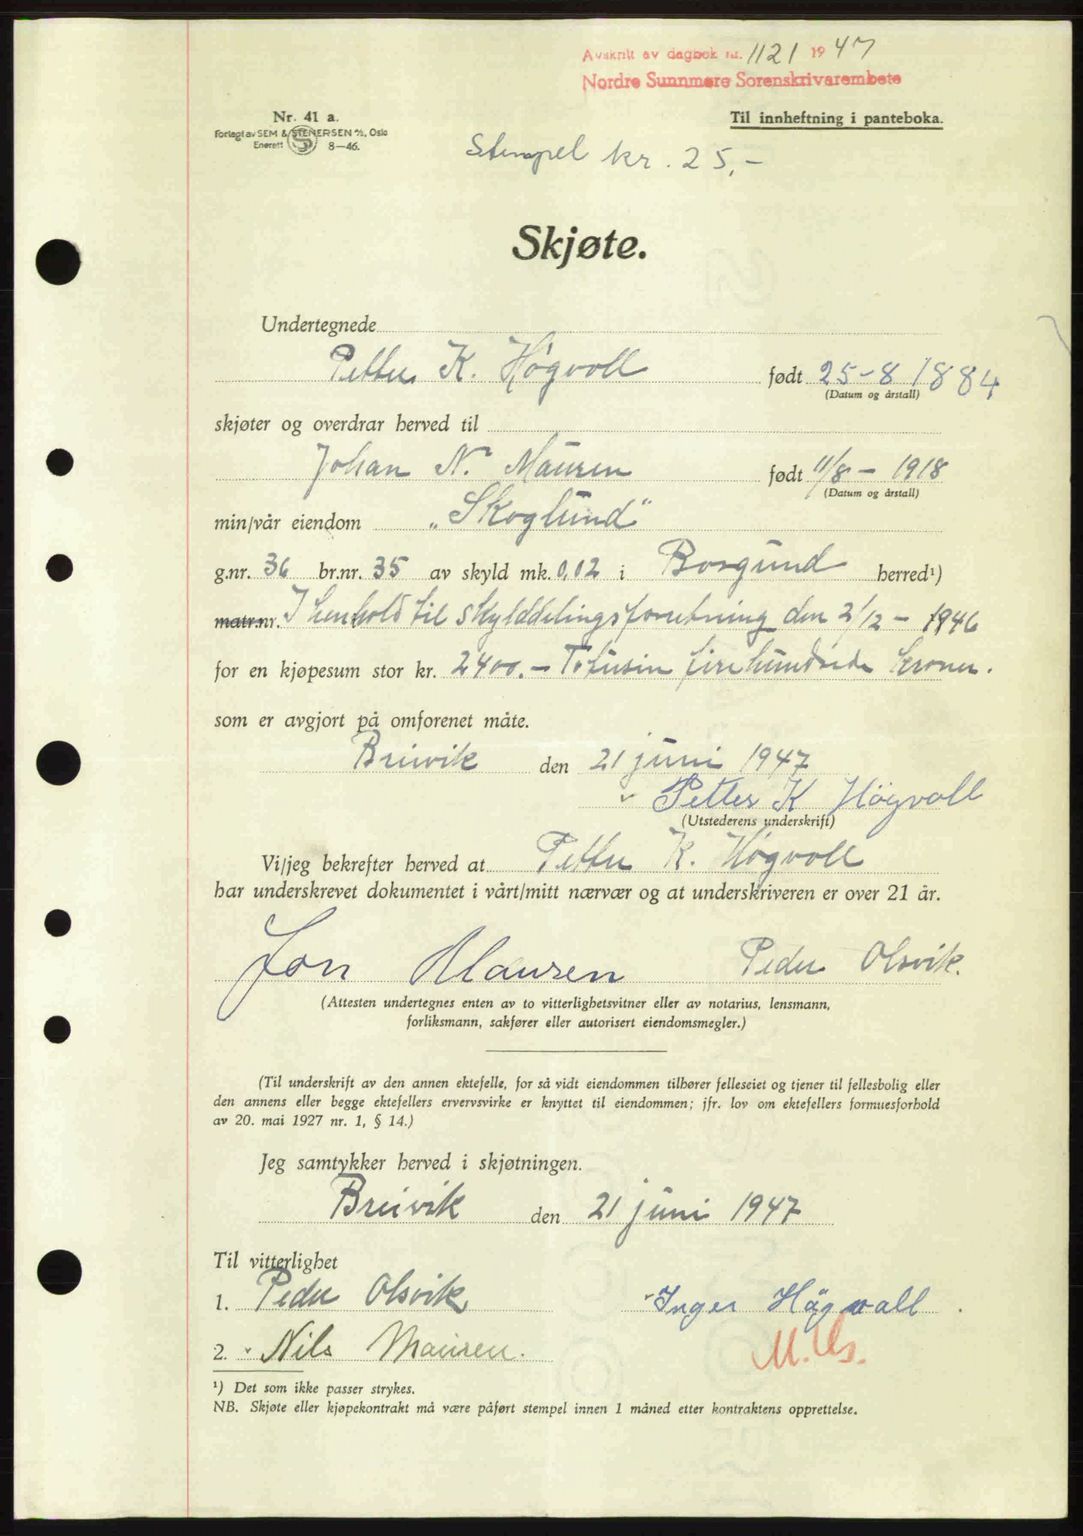 Avskrift av dagbok nr. 1121 1947
Nordre Sunnmøre Sorenskrivarembete
Nr. 41 a.
Forlagt av SEM & STENERSEN A/S, Oslo
Enerett S 8—46.
Til innheftning i panteboka.
Stempel kr. 25,-
Skjøte.
Undertegnede
Petter K. Høgvoll født 25-8 1884
(Datum og årstall)
skjøter og overdrar herved til
Johan N. Mauren født 11/8 - 1918
(Datum og årstall)
min/vår eiendom „Skoglund“
g.nr. 36 br.nr. 35 av skyld mk. 0,02 i Borgund herred¹)
matr.nr. I henhold til skylddelingsforretning den 2/12 - 1946
for en kjøpesum stor kr. 2400.- Totusin firehundrede kroner.
som er avgjort på omforenet måte.
Breivik den 21 juni 1947
Petter K Högvoll
(Utstederens underskrift)
Vi/jeg bekrefter herved at Petter K. Høgvoll
har underskrevet dokumentet i vårt/mitt nærvær og at underskriveren er over 21 år.
Jon Mauren Peder Olsvik.
(Attesten undertegnes enten av to vitterlighetsvitner eller av notarius, lensmann,
forliksmann, sakfører eller autorisert eiendomsmegler.)
(Til underskrift av den annen ektefelle, for så vidt eiendommen tilhører felleseiet og tjener til fellesbolig eller
den annens eller begge ektefellers ervervsvirke er knyttet til eiendommen; jfr. lov om ektefellers formuesforhold
av 20. mai 1927 nr. 1, § 14.)
Jeg samtykker herved i skjøtningen.
Breivik den 21 juni 1947
Til vitterlighet
1. Peder Olsvik Inger Högvoll
2. Nils Mauren.
¹) Det som ikke passer strykes.
NB. Skjøte eller kjøpekontrakt må være påført stempel innen 1 måned etter kontraktens opprettelse.